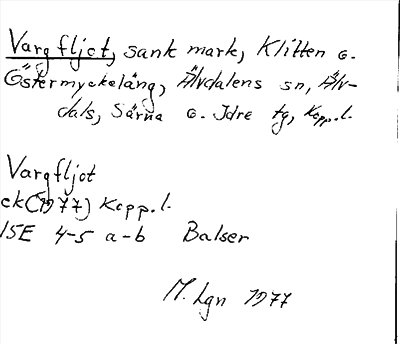 Vargfljot, sank mark, Klitten o.
Östermyckeläng, Älvdalens sn, Älv-
dals, Särna o. Idre tg, Kopp.l.
Vargfljot
ck (1977) Kopp.l.
15E 4-5 a-b Balser
M. Lgn 1977